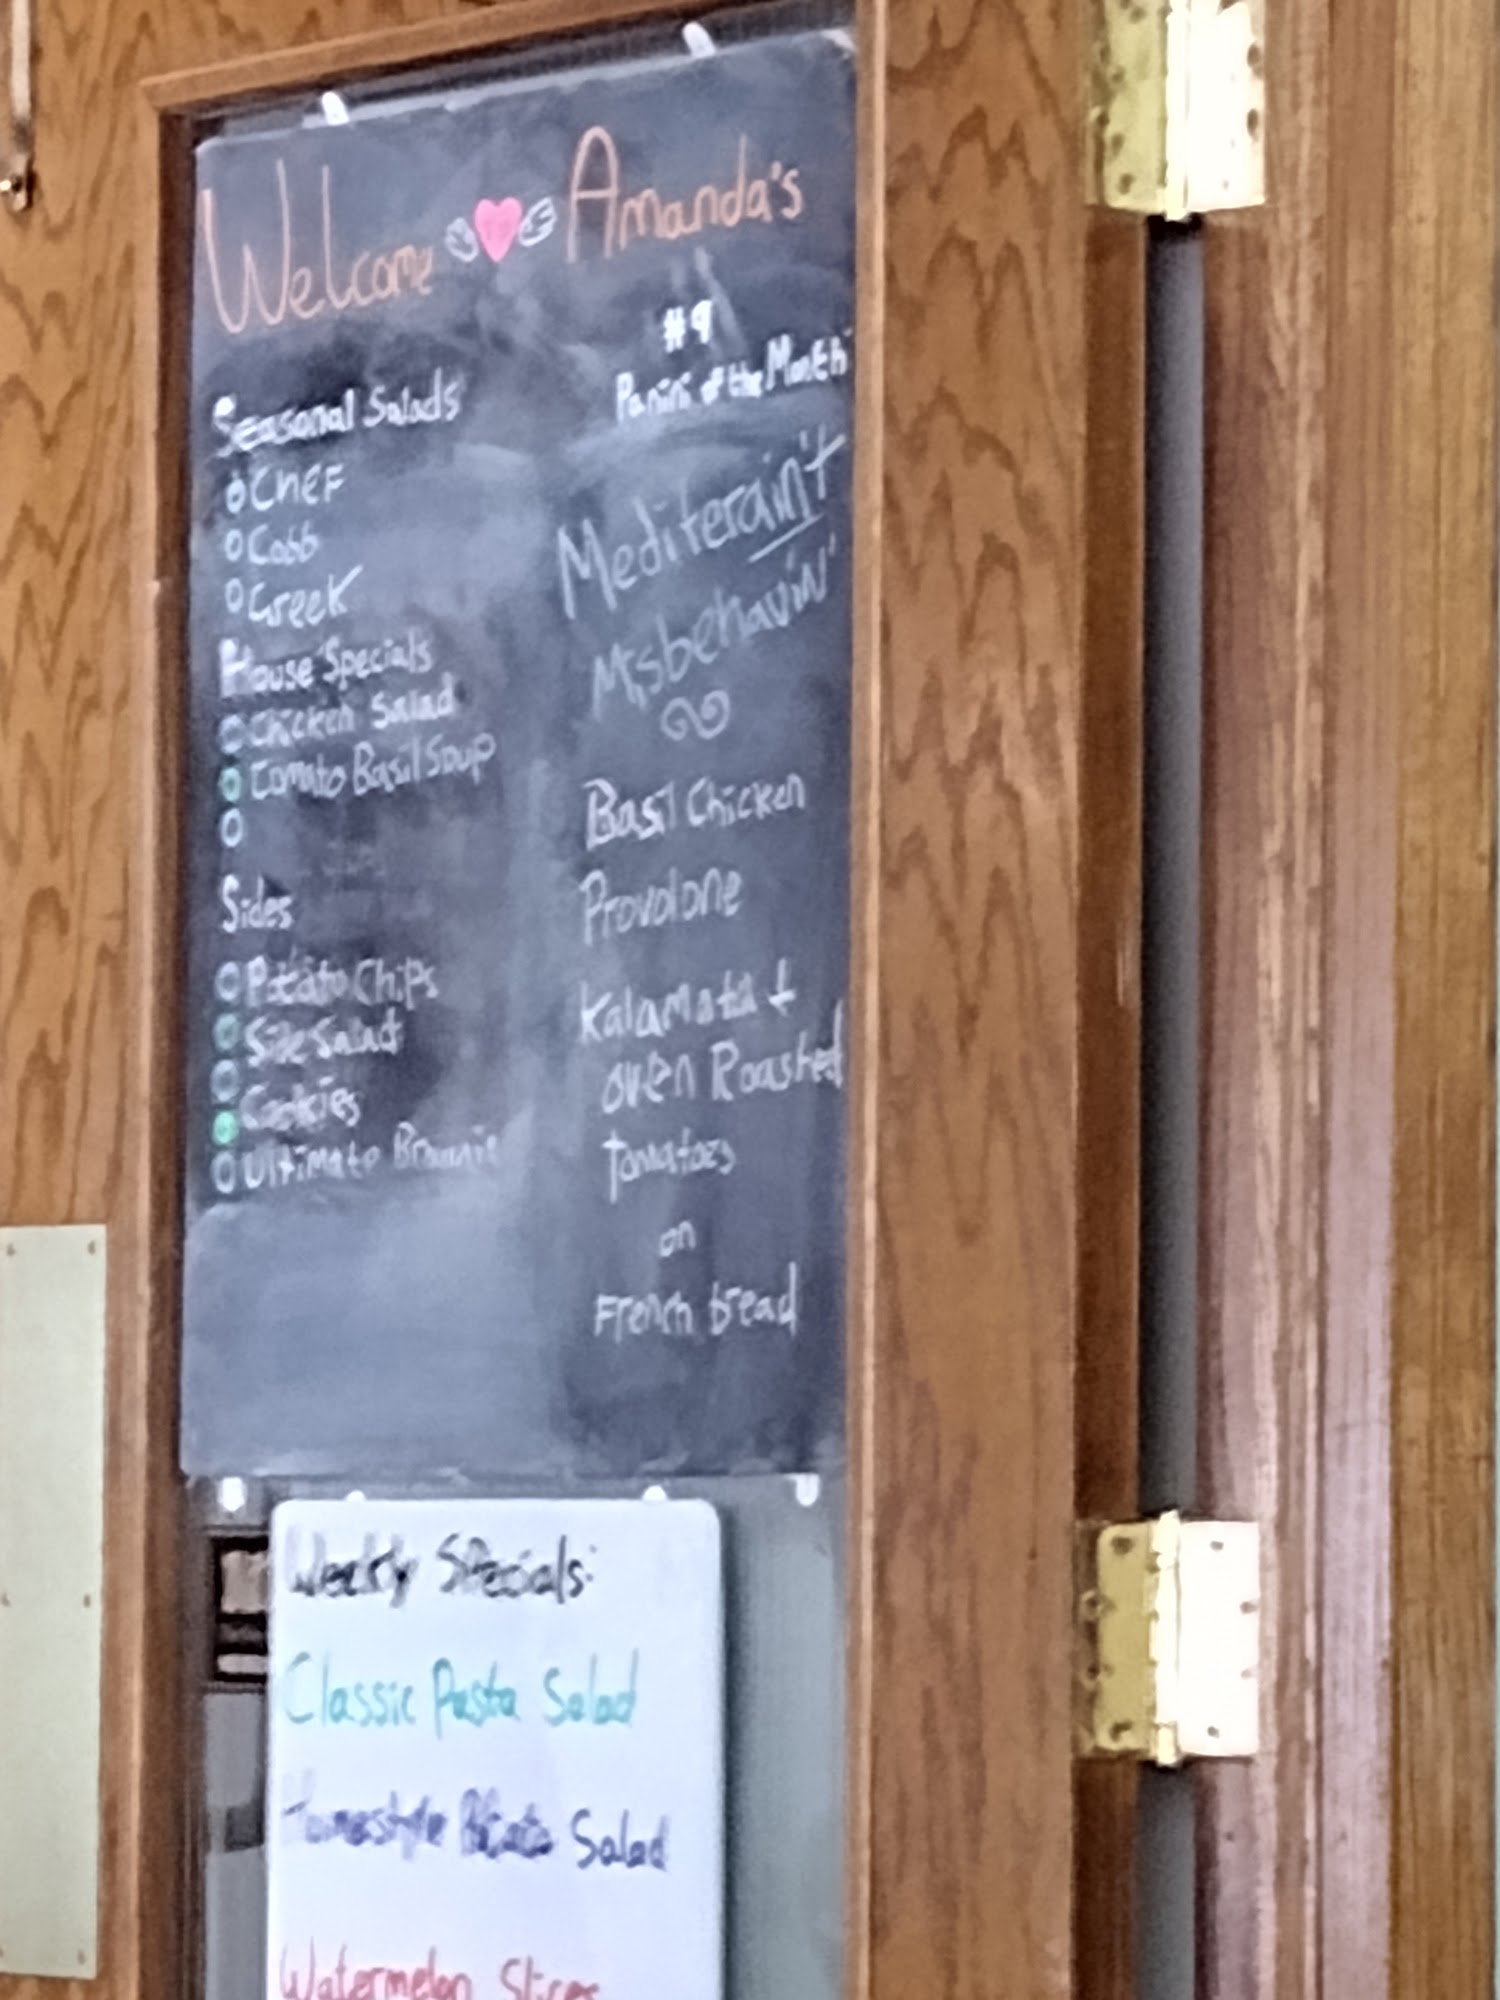 Welcome Amanda's
Seasonal Salads
Chef
Cobb
Greek
House Specials
Chicken Salad
Tomato Basil Soup
Sides
Potato Chips
Side Salad
Cookies
Ultimate Brownie
#9
Panini of the Month
Mediterain't
Misbehavin'
Basil Chicken
Provolone
Kalamata +
oven Roasted
Tomatoes
on
French bread
Weekly Specials:
Classic Pasta Salad
Homestyle Potato Salad
Watermelon Slices